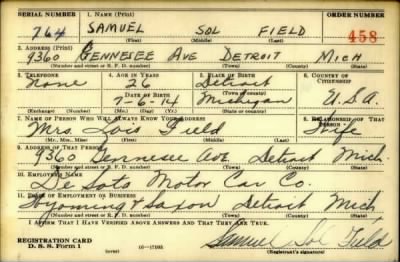 SERIAL NUMBER 1. NAME (Print) ORDER NUMBER
764 SAMUEL SOL FIELD 458
(First) (Middle) (Last)
2. ADDRESS (Print)
9360 GENNESEE AVE DETROIT MICH
(Number and street or R. F. D. number) (Town) (County) (State)
3. TELEPHONE 4. AGE IN YEARS 5. PLACE OF BIRTH 6. COUNTRY OF CITIZENSHIP
None 26 Detroit
DATE OF BIRTH (Town or county)
7-6-14 Michigan U.S.A.
(Exchange) (Number) (Mo.) (Day) (Yr.) (State or country)
7. NAME OF PERSON WHO WILL ALWAYS KNOW YOUR ADDRESS 8. RELATIONSHIP OF THAT PERSON
Mrs. Lois Field Wife
(Mr., Mrs., Miss) (First) (Middle) (Last)
9. ADDRESS OF THAT PERSON
9360 Gennesee Ave. Detroit Mich.
(Number and street or R. F. D. number) (Town) (County) (State)
10. EMPLOYER'S NAME
De Soto Motor Car Co.
11. PLACE OF EMPLOYMENT OR BUSINESS
Wyoming & Saxon Detroit Mich
(Number and street or R. F. D. number) (Town) (County) (State)
I AFFIRM THAT I HAVE VERIFIED ABOVE ANSWERS AND THAT THEY ARE TRUE.
REGISTRATION CARD Samuel Sol Field
D. S. S. Form 1 (over) (Registrant's signature)